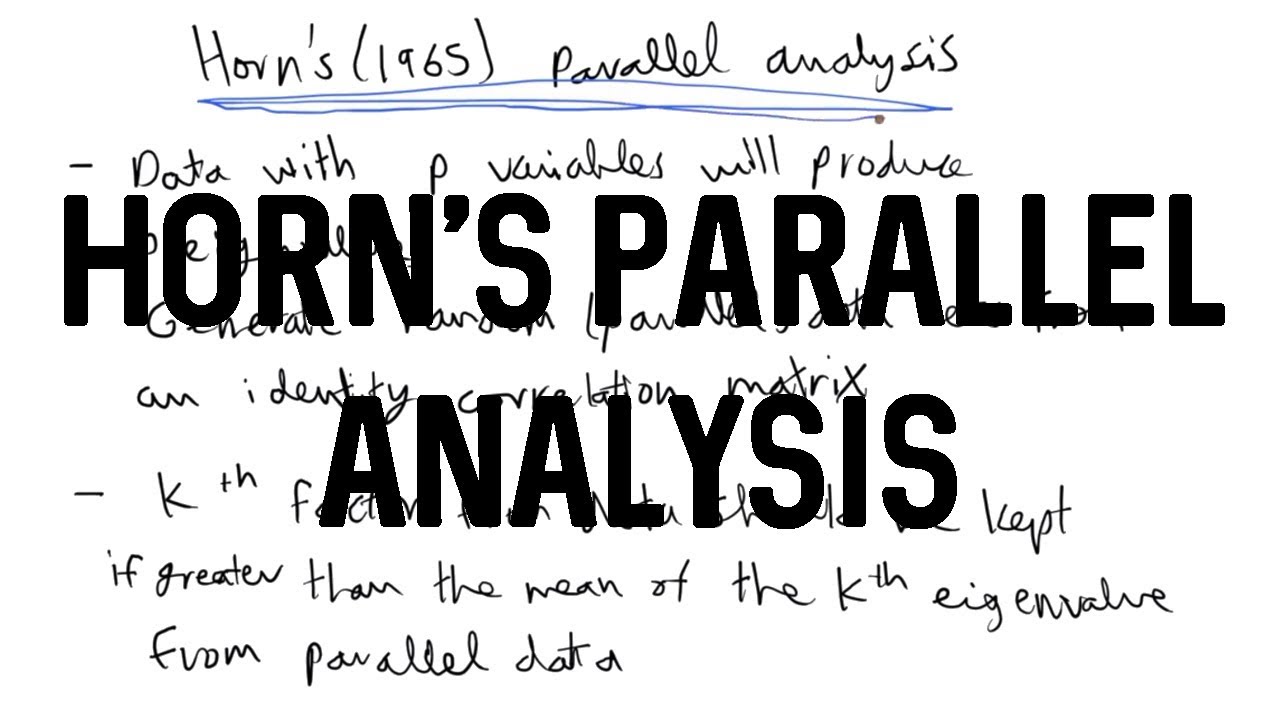 Horn's (1965) parallel analysis
- Data with p variables will produce
HORN'S PARALLEL
Generate random (parallel) data
an identity correlation matrix
ANALYSIS
- Kth factor from data should be kept
if greater than the mean of the Kth eigenvalue
from parallel data